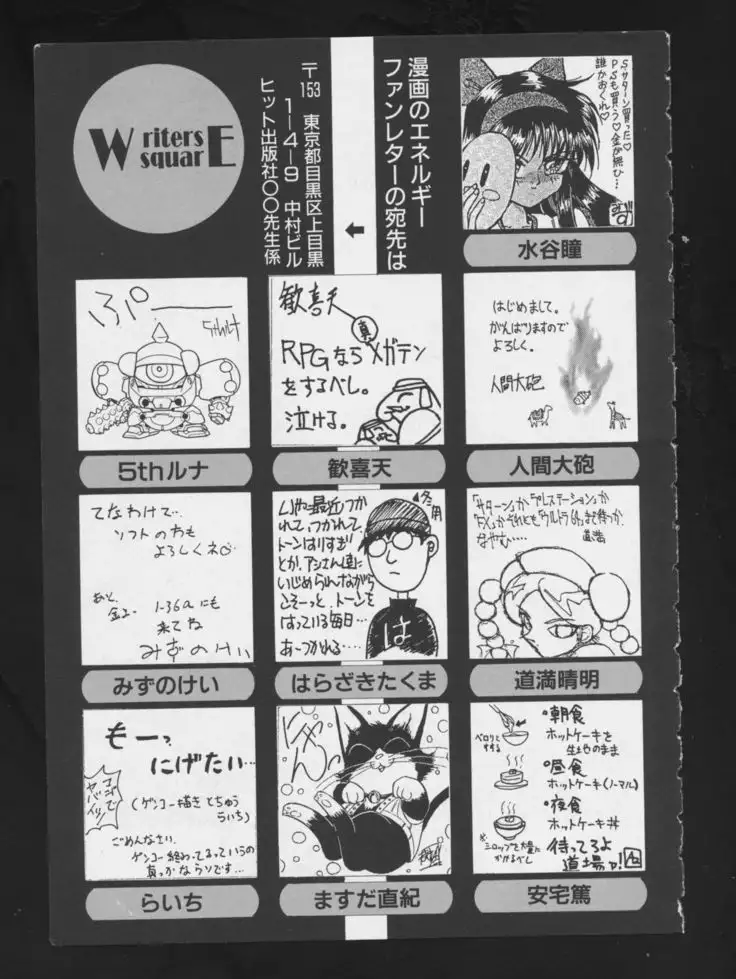 Writers
squarE
漫画のエネルギー
ファンレターの宛先は
〒153 東京都目黒区上目黒
1―4―9 中村ビル
ヒット出版社〇〇先生係
S.サターン買った♡
PSも買う♡金が無ひ…
誰かおくれ♡
水谷瞳
ぷ〜
5thルナ
5thルナ
歓喜天
真
RPGならメガテン
をするべし。
泣ける。
歓喜天
はじめまして。
がんばりますので
よろしく。
人間大砲
人間大砲
てなわけで…
ソフトのわも
よろしくネ
あと、
1-36aにも
来てね
みずのけい
みずのけい
いや最近つか
れて、つかれて、
トーンはりすぎ
とか、アシさん達に
いじめられながら
こそーっと、トーンを
はっている毎日…
あーつかれる…
冬用
は
はらざきたくま
「サターン」か「プレステーション」か
「FX」か、それとも「ウルトラ64」まで待つか、
なやむ…… 道満
道満晴明
もーっ
にげたい…
(ゲンコー描きとちゅう
らいち)
ヤバイッ
ごめんなさい。
ゲンコー終わってまっていうの
真っかなウソです…
らいち
にゃん
ますだ直紀
・朝食
ホットケーキを
生地のまま
ペロリと
する
・昼食
ホットケーキ(ノーマル)
・夜食
ホットケーキ丼
※
シロップを大量に
かけるべし
待ってろよ
道場ァ!
安宅篤